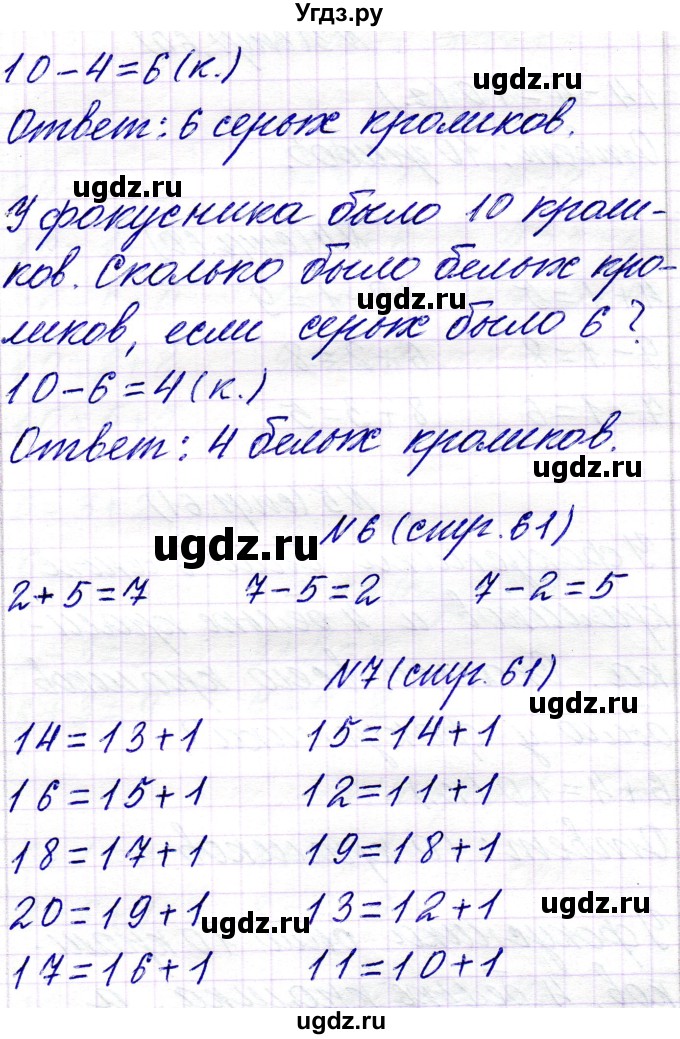 Угдз.ру
10-4=6(к.)
ugdz.ru
Ответ: 6 серых кроликов.
ugdz.ru
У фокусника было 10 кроли-
ков. Сколько было белых кро-
ugdz.ru
ликов, если серых было 6?
10-6=4(к.)
Ответ: 4 белых кроликов.
ugdz.ru
N6 (стр. 61)
ugdz.ru
2+5=7 7-5=2 7-2=5
N7 (стр. 61)
ugdz.ru
14=13+1 15=14+1
16=15+1 12=11+1
18=17+1 19=18+1
20=19+1 13=12+1
ugdz.ru ugdz.ru
17=16+1 11=10+1
ugdz.ru